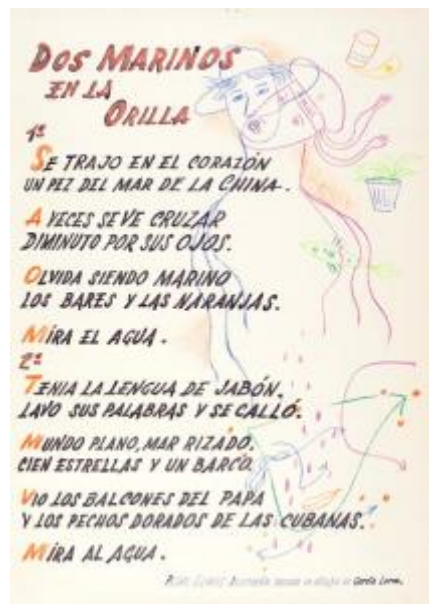 DOS MARINOS
EN LA
ORILLA
1º
SE TRAJO EN EL CORAZÓN
UN PEZ DEL MAR DE LA CHINA.
A VECES SE VE CRUZAR
DIMINUTO POR SUS OJOS.
OLVIDA SIENDO MARINO
LOS BARES Y LAS NARANJAS.
MIRA EL AGUA.
2º
TENIA LA LENGUA DE JABÓN.
LAVO SUS PALABRAS Y SE CALLÓ.
MUNDO PLANO, MAR RIZADO.
CIEN ESTRELLAS Y UN BARCO.
VIO LOS BALCONES DEL PAPA
Y LOS PECHOS DORADOS DE LAS CUBANAS.
MIRA AL AGUA.
dibujo de García Lorca.